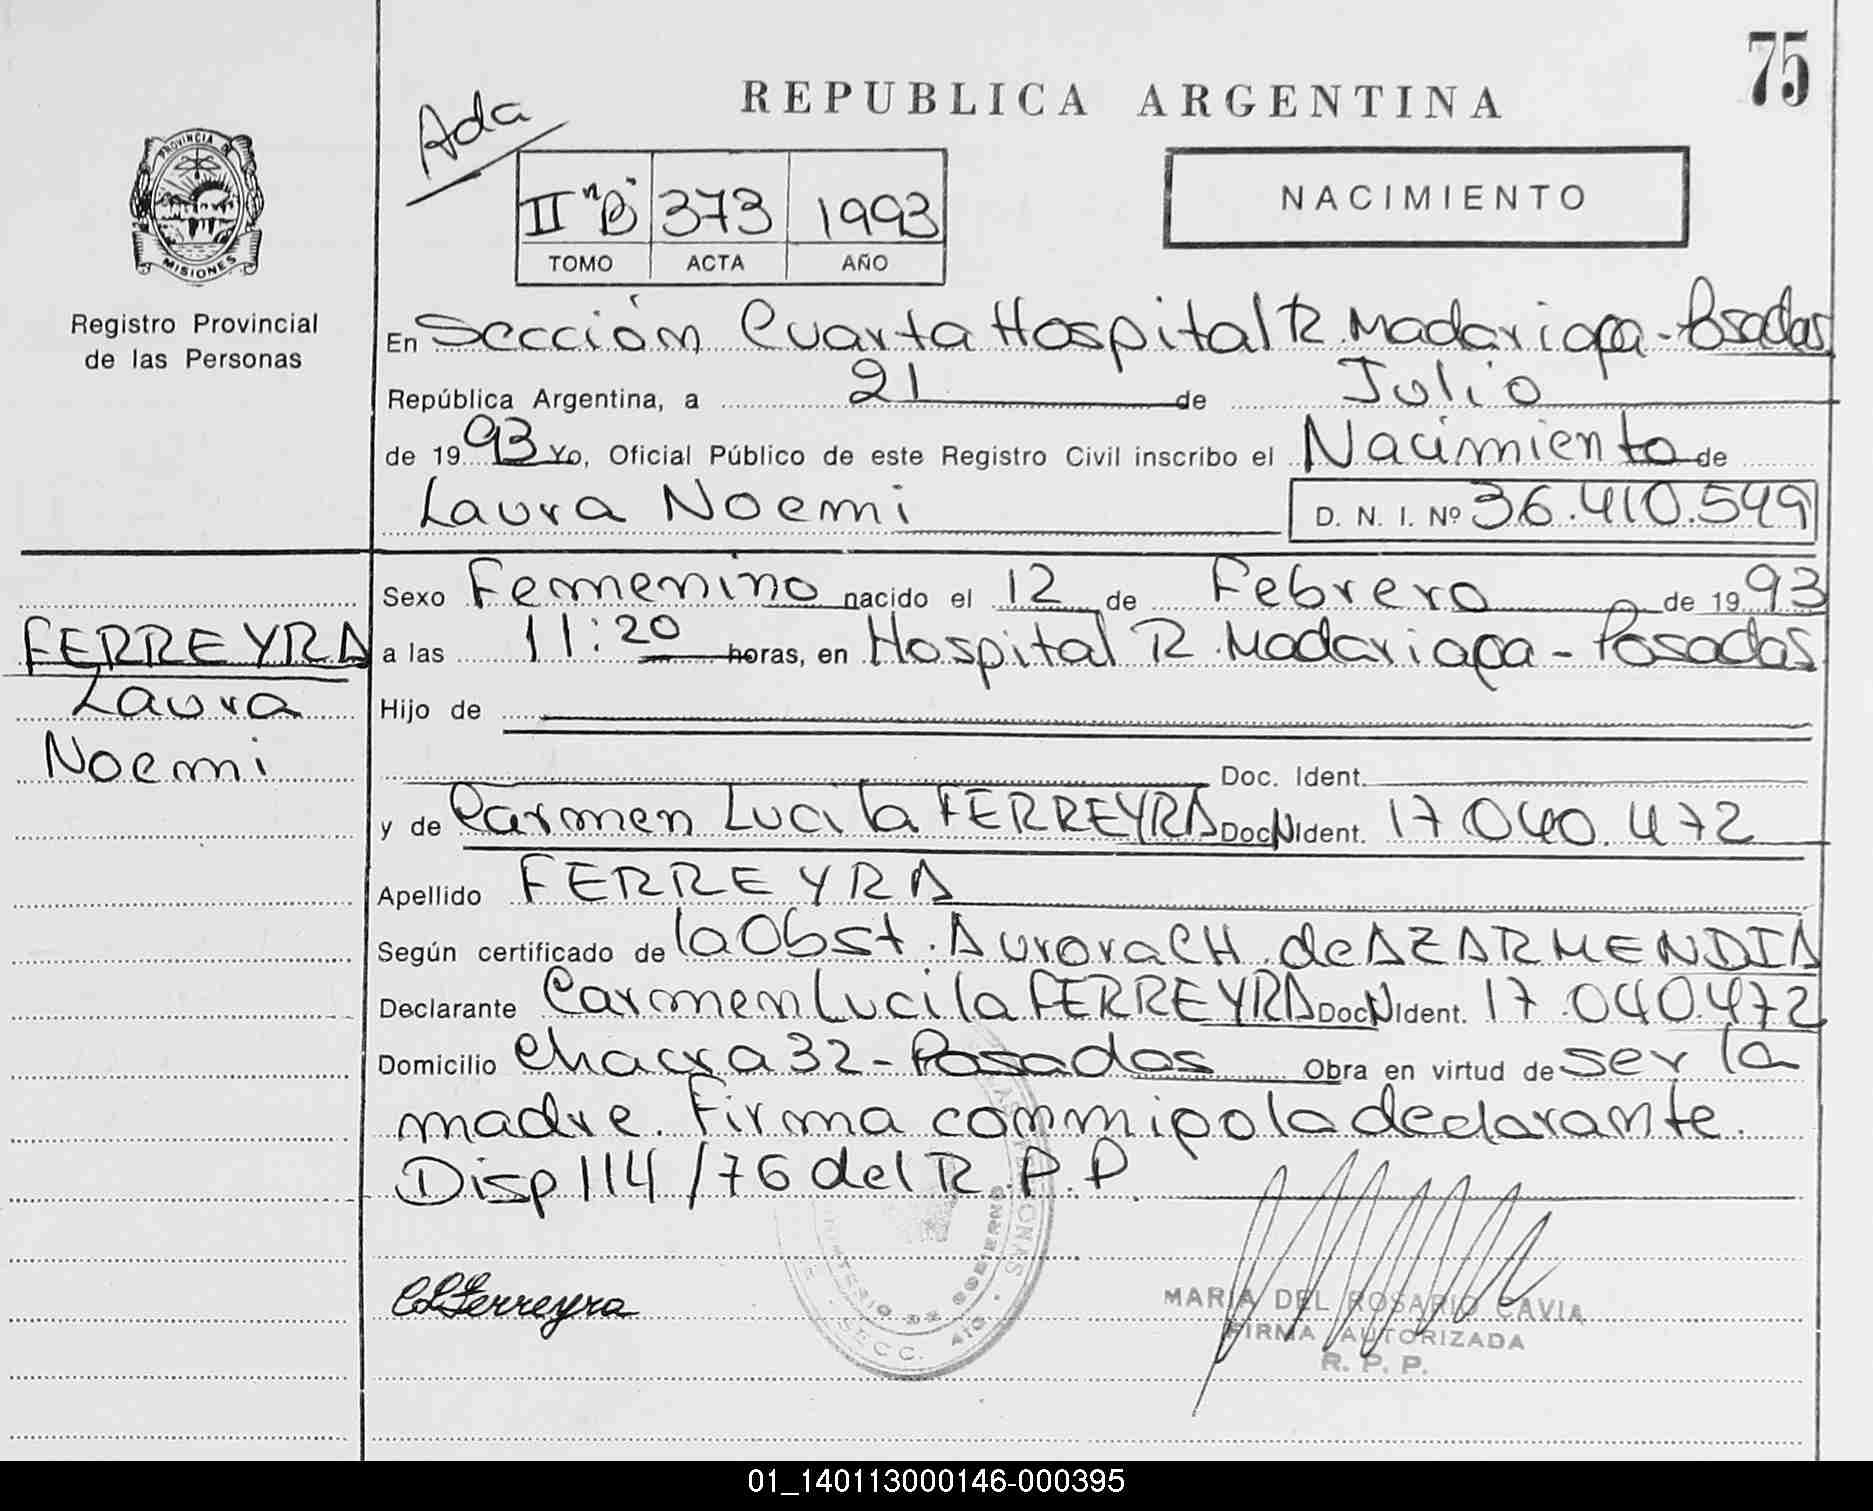 75
REPUBLICA ARGENTINA
Ada
NACIMIENTO
II "B" 373 1993
TOMO ACTA AÑO
PROVINCIA DE
MISIONES
Registro Provincial
de las Personas
En Sección Cuarta Hospital R. Madariaga - Posadas
República Argentina, a 21 de Julio
de 1993 Yo, Oficial Público de este Registro Civil inscribo el Nacimiento de
Laura Noemi D. N. I. Nº 36.410.549
Sexo Femenino nacido el 12 de Febrero de 1993
FERREYRA
Laura
Noemi
a las 11:20 horas, en Hospital R. Madariaga - Posadas
Hijo de
Doc. Ident.
y de Carmen Lucila FERREYRA Doc N Ident. 17 040.472
Apellido FERREYRA
Según certificado de la Obst. Aurora CH. de AZARMENDIA
Declarante Carmen Lucila FERREYRA Doc N Ident. 17.040.472
Domicilio Chacra 32 - Posadas Obra en virtud de ser la
madre. Firma conmigo la declarante.
Disp 114/76 del R.P.P.
CLFerreyra
MARIA DEL ROSARIO CAVIA
FIRMA AUTORIZADA
R. P. P.
DE GOBIERNO
SECC.
01_140113000146-000395